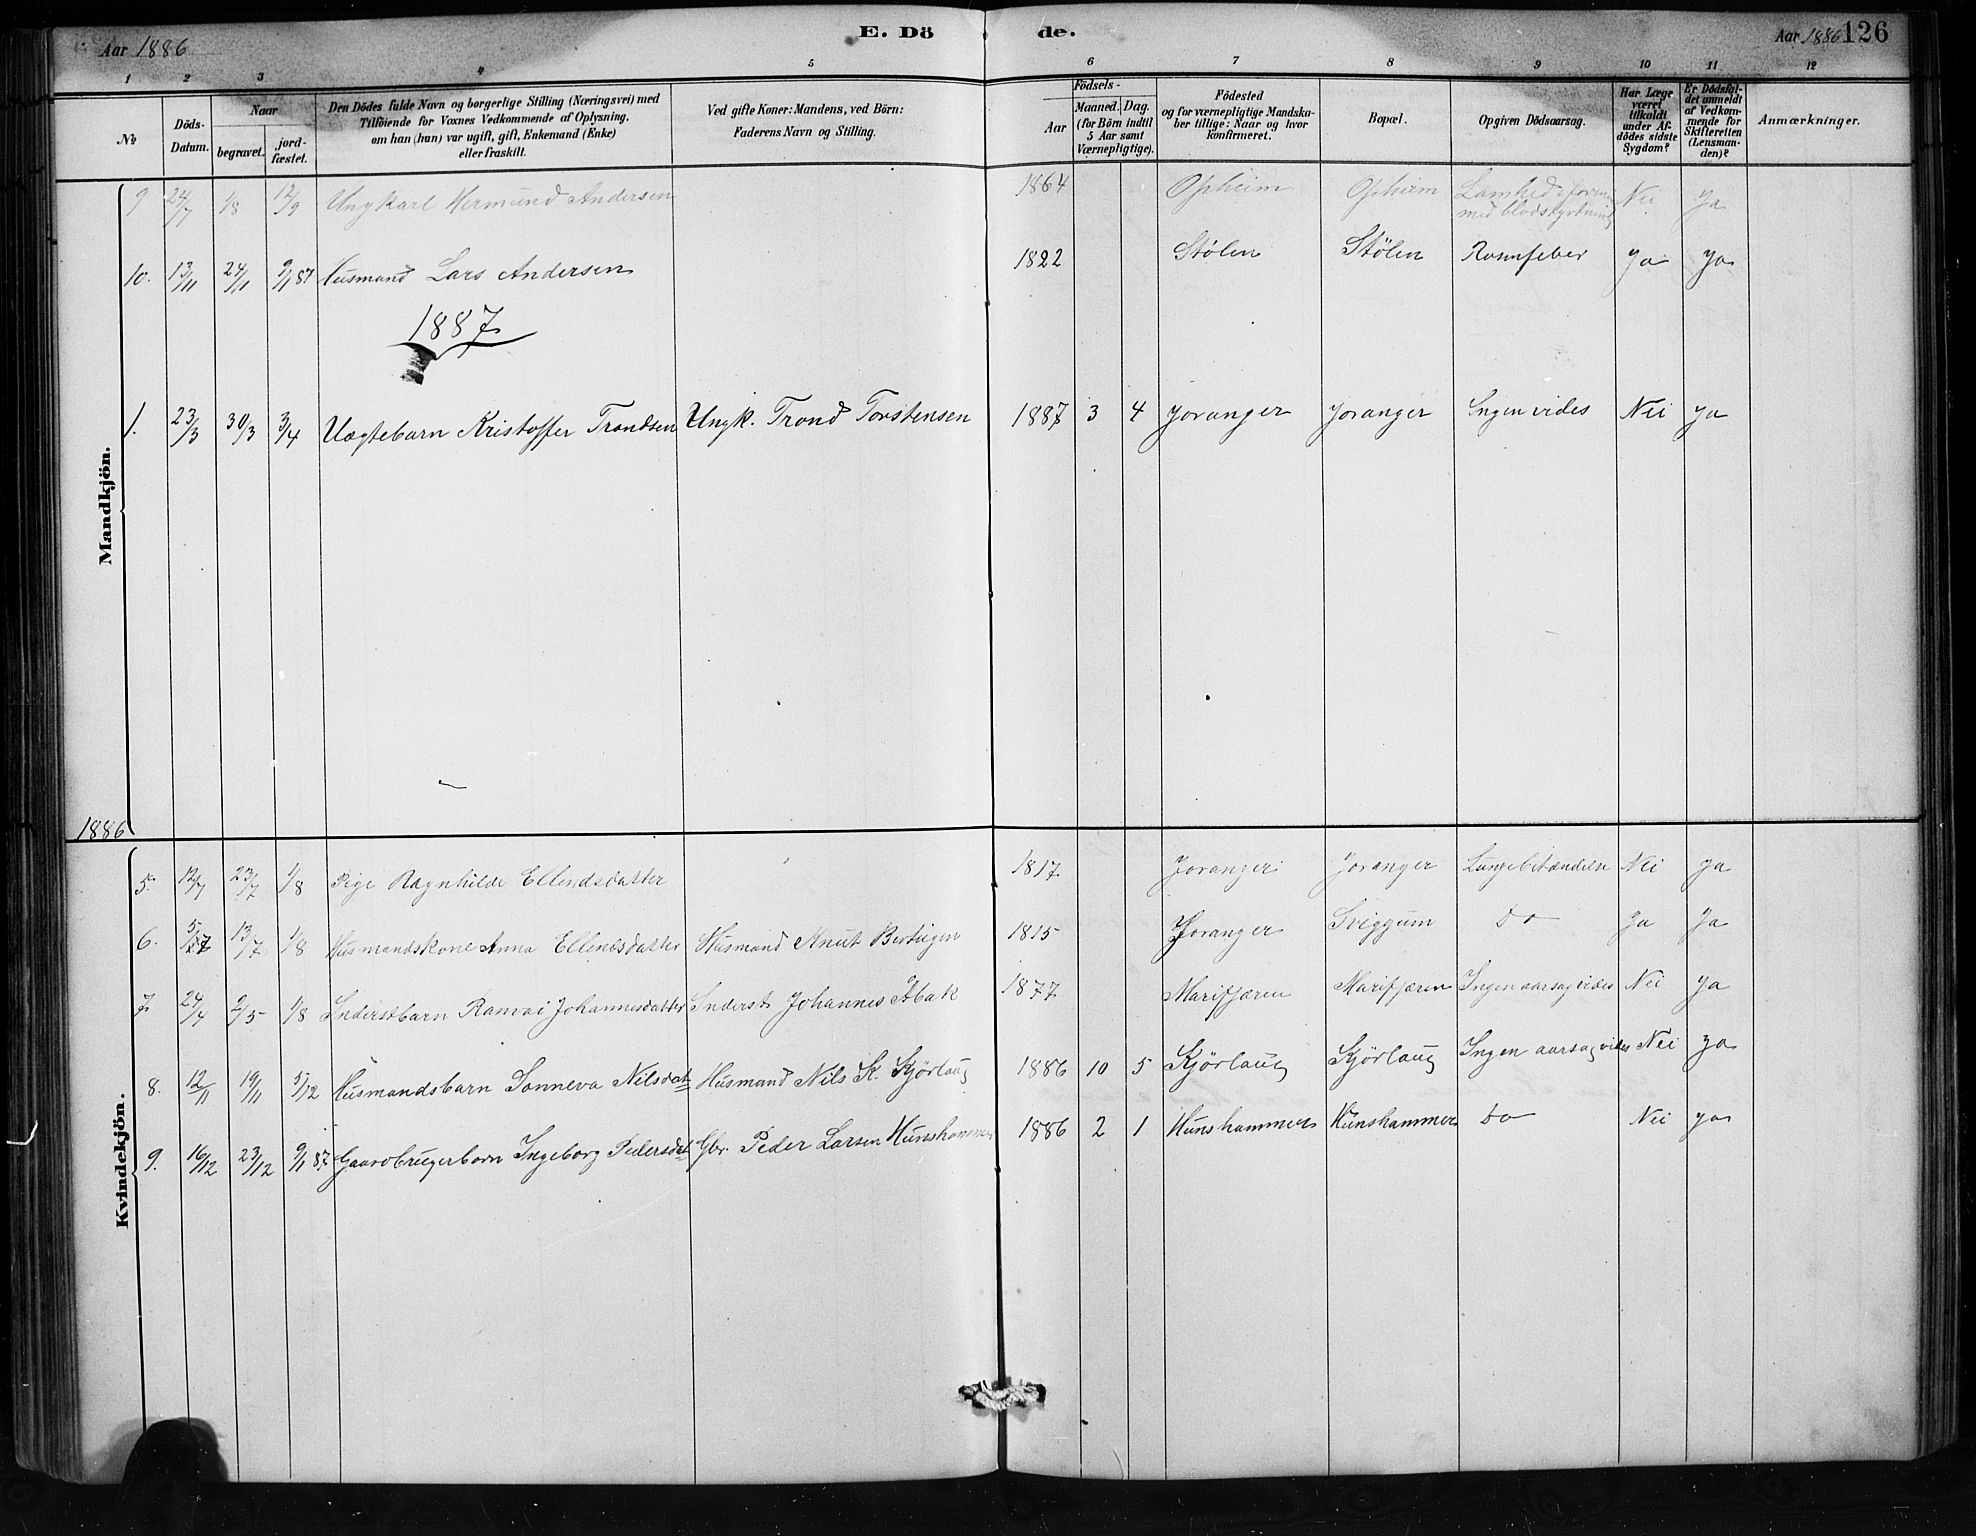 Aar 1886 E. Dö de. Aar 1886 126
1 2 3 4 5 6 7 8 9 10 11 12
№
Döds-Datum.
Naar
begravet.
jord-fæstet.
Den Dödes fulde Navn og borgerlige Stilling (Næringsvei) med
Tilföiende for Voxnes Vedkommende af Oplysning,
om han (hun) var ugift, gift, Enkemand (Enke)
eller fraskilt.
Ved gifte Koner: Mandens, ved Börn:
Faderens Navn og Stilling.
Födsels-
Aar
Maaned. Dag.
(for Börn indtil
5 Aar samt
Værnepligtige).
Födested
og for værnepligtige Mandska-
ber tillige: Naar og hvor
konfirmeret.
Bopæl.
Opgiven Dödsaarsag.
Har Læge
været
tilkaldt
under Af-
dödes sidste
Sygdom?
Er Dödsfal-
det anmeldt
af Vedkom-
mende for
Skifteretten
(Lensman-
den)?
Anmærkninger.
Mandkjön.
9 24/7 1/8 12/9 Ungkarl Hermund Andersen 1864 Opheim Opheim Nei Ja
med blodstyrtning
10. 13/11 24/11 9/1 87 Husmand Lars Andersen 1822 Stølen Stølen Ja Ja
1887
1. 23/3 30/3 3/4 Kristoffer Trondsen Ungk. Trond Torstensen 1887 3 4 Joranger Joranger Ingen vides Nei Ja
1886
Kvindekjön.
5. 12/7 23/7 1/8 Pige Ragnhilde Ellendsdatter 1817 Joranger Joranger Lungebetændelse Nei Ja
6. 13/7 1/8 Husmandskone Anna Ellendsdatter Husmand Knut 1815 Joranger Sviggum Do Ja Ja
7. 24/4 2/5 1/8 Inderstbarn Johannesdatter Inderst Johannes 1877 Marifjæren Marifjæren Ingen aarsag vides Nei Ja
8. 12/11 19/11 5/12 Husmandsbarn Sonneva Nilsdat Husmand Nils K. Kjörlaug 1886 10 5 Kjørlaug Kjörlaug Ingen aarsag vides Nei Ja
9. 16/12 23/12 9/1 87 Gaardbrugerbarn Ingeborg Pedersdat Gbr. Peder Larsen Hunshammer 1886 2 1 Hunshammer Hunshammer Do Nei Ja